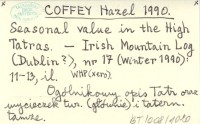 COFFEY Hazel 1990.
Seasonal value in the High
Tatras. — Irish Mountain Log
(Dublin?), nr 17 (Winter 1990):
11-13, il. WHP (xero)
Ogólnikowy opis Tatr oraz
wycieczek tur. (głównie) i tatern.
tamże.